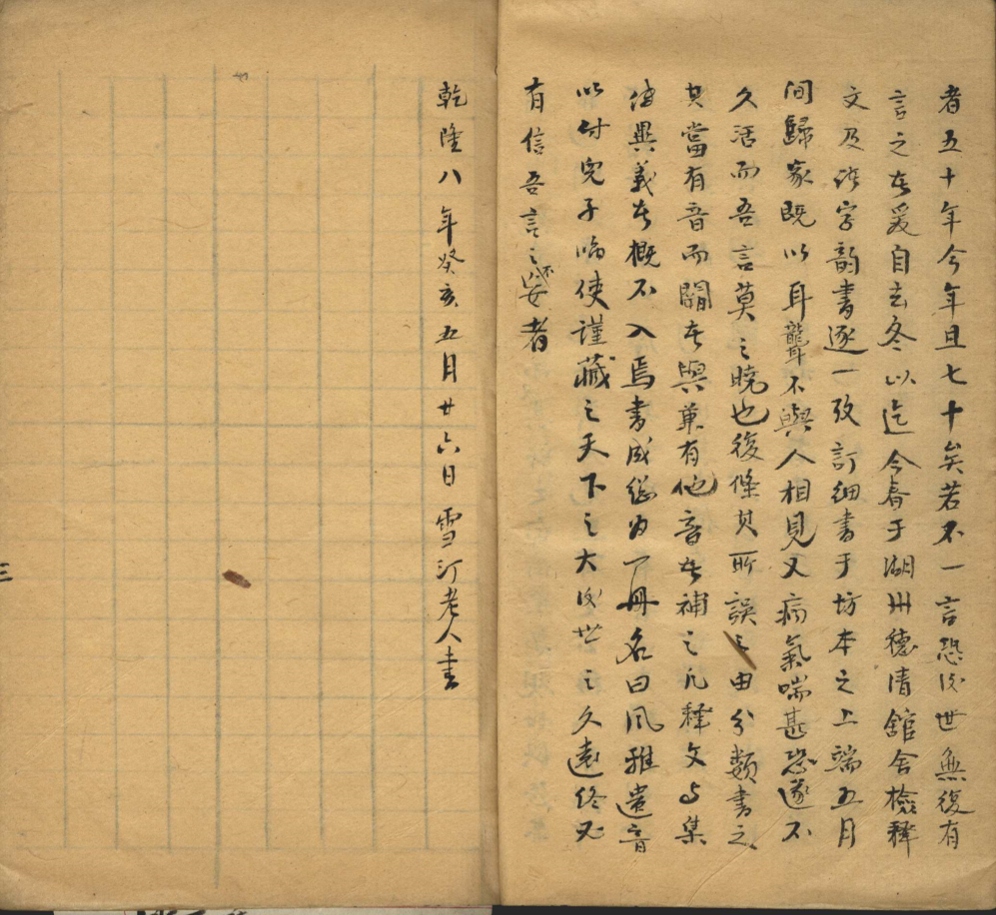 者五十年今年且七十矣若不一言恐後世無復有
言之者爰自去冬以迄今春于湖州德清館舍檢釋
文及諸字韵書逐一攷訂細書于坊本之上端五月
间歸家既以耳聾不與人相見又病氣喘甚恐遂不
久活而吾言莫之曉也後條其所誤之由分類書之
其當有音而闕者與兼有他音者補之凡釋文与集
傳異義者概不入焉書成總为一冊名曰風雅遺音
以付兒子 使謹藏之天下之大後世之久遠終必
有信吾言之不妄者
乾隆八年癸亥五月廿六日雪汀老人書
三